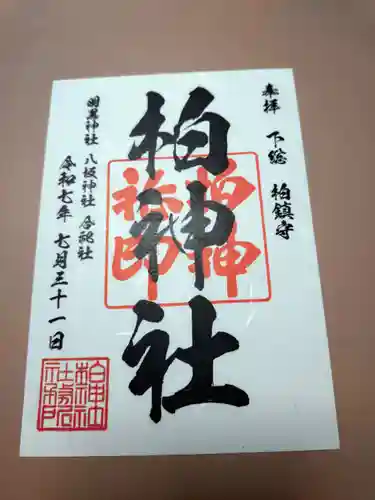 奉拝 下総 柏鎮守
柏神社
羽黒神社 八坂神社 合祀社
令和七年 七月三十一日
柏神社印